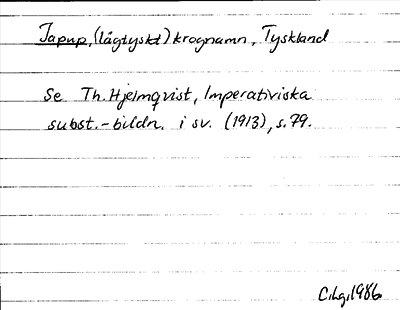 Tapup, (lågtyskt) krognamn, Tyskland
Se Th. Hjelmqvist, Imperativiska
subst.-bildn. i sv. (1913), s. 79.
C.Lg. 1986